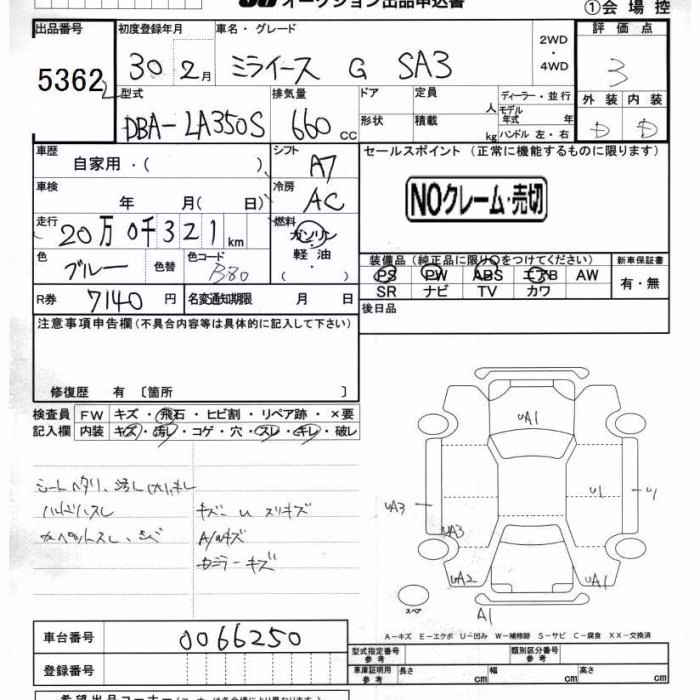 オークション出品申込書
①会場控
出品番号 初度登録年月 車名・グレード 2WD・4WD 評価点
5362 30 2月 ミライース G SA3 3
型式 排気量 ドア 定員 ディーラー・並行 外装 内装
DBA-LA350S 660cc 形状 積載 人 kg モデル年式 年 ハンドル 左・右 D D
車歴 自家用・( ) シフト A7 セールスポイント (正常に機能するものに限ります)
車検 年 月( 日) 冷房 AC NOクレーム・売切
走行 20万0千321km 燃料 ガソリン・軽油・( )
装備品(純正品に限り○をつけてください) 新車保証書
色 ブルー 色替 色コード B80 PS PW ABS エアB AW 有・無
SR ナビ TV カワ
R券 7140円 名変通知期限 月 日 後日品
注意事項申告欄(不具合内容等は具体的に記入して下さい)
修復歴 有 [箇所 ]
検査員 FW キズ・飛石・ヒビ割・リペア跡・×要
記入欄 内装 キズ・汚レ・コゲ・穴・スレ・キレ・破レ
シートヘタリ、
ハンドルスレ キズ U スリキズ
カーペットスレ、 A/Wキズ
キズ
UA1
U1 U
UA3 UA3
UA2 UA1
スペア A1
A-キズ E-エクボ U-凹み W-補修跡 S-サビ C-腐食 XX-交換済
車台番号 0066250
型式指定番号 参考 類別区分番号 参考
登録番号 車庫証明用 参考 長さ cm 幅 cm 高さ cm
希望出品コーナー